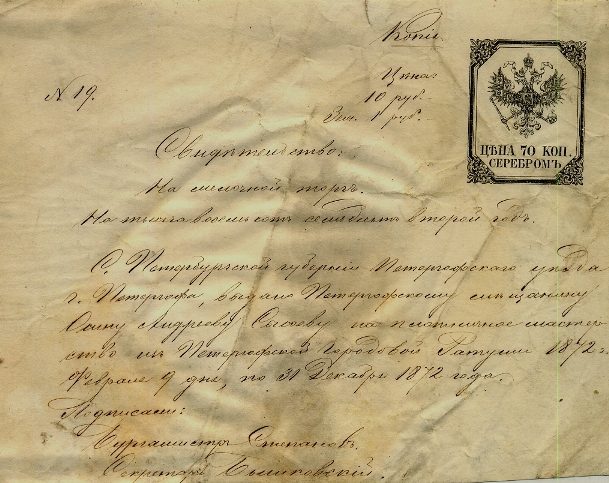 Копія.
Цѣна:
№ 19.
10 руб.
Зем. 1 руб.
ЦѢНА 70 КОП.
СЕРЕБРОМЪ
Свидѣтельство.
На мелочной торгъ.
На тысяча восемьсотъ семьдесятъ второй годъ.
С. Петербургской губерніи Петергофскаго уѣзда
г. Петергофа, выдано Петергофскому мѣщанину
Осипу Андрееву на плотничное мастер
ство изъ Петергофской Городовой Ратуши 1872 г.
Февраля 9 дня, по 31 Декабря 1872 года.
Подписали:
Бургомистръ Степановъ.
Секретарь